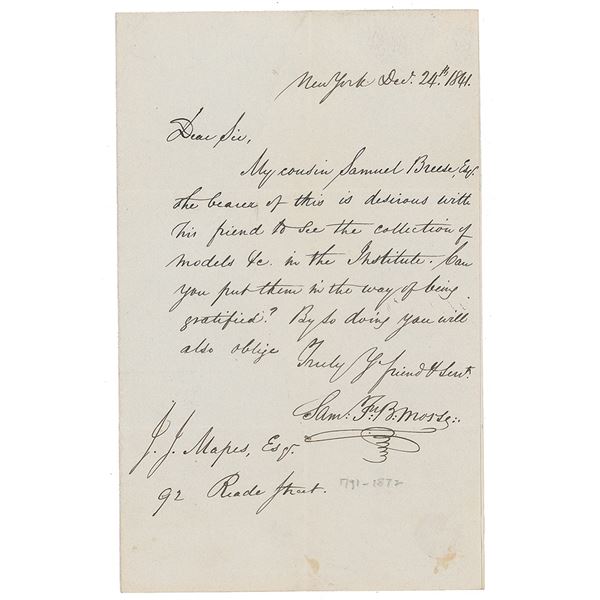 New York Decr. 24th. 1841.
Dear Sir,
My cousin Samuel Breese, Esq.
the bearer of this is desirous with
his friend to see the collection of
models &c. in the Institute. Can
you put them in the way of being
gratified? By so doing you will
also oblige
Truly Yr friend & Servt.
Saml. F. B. Morse.
J. J. Mapes, Esqr.
92 Reade Street.
1791-1872